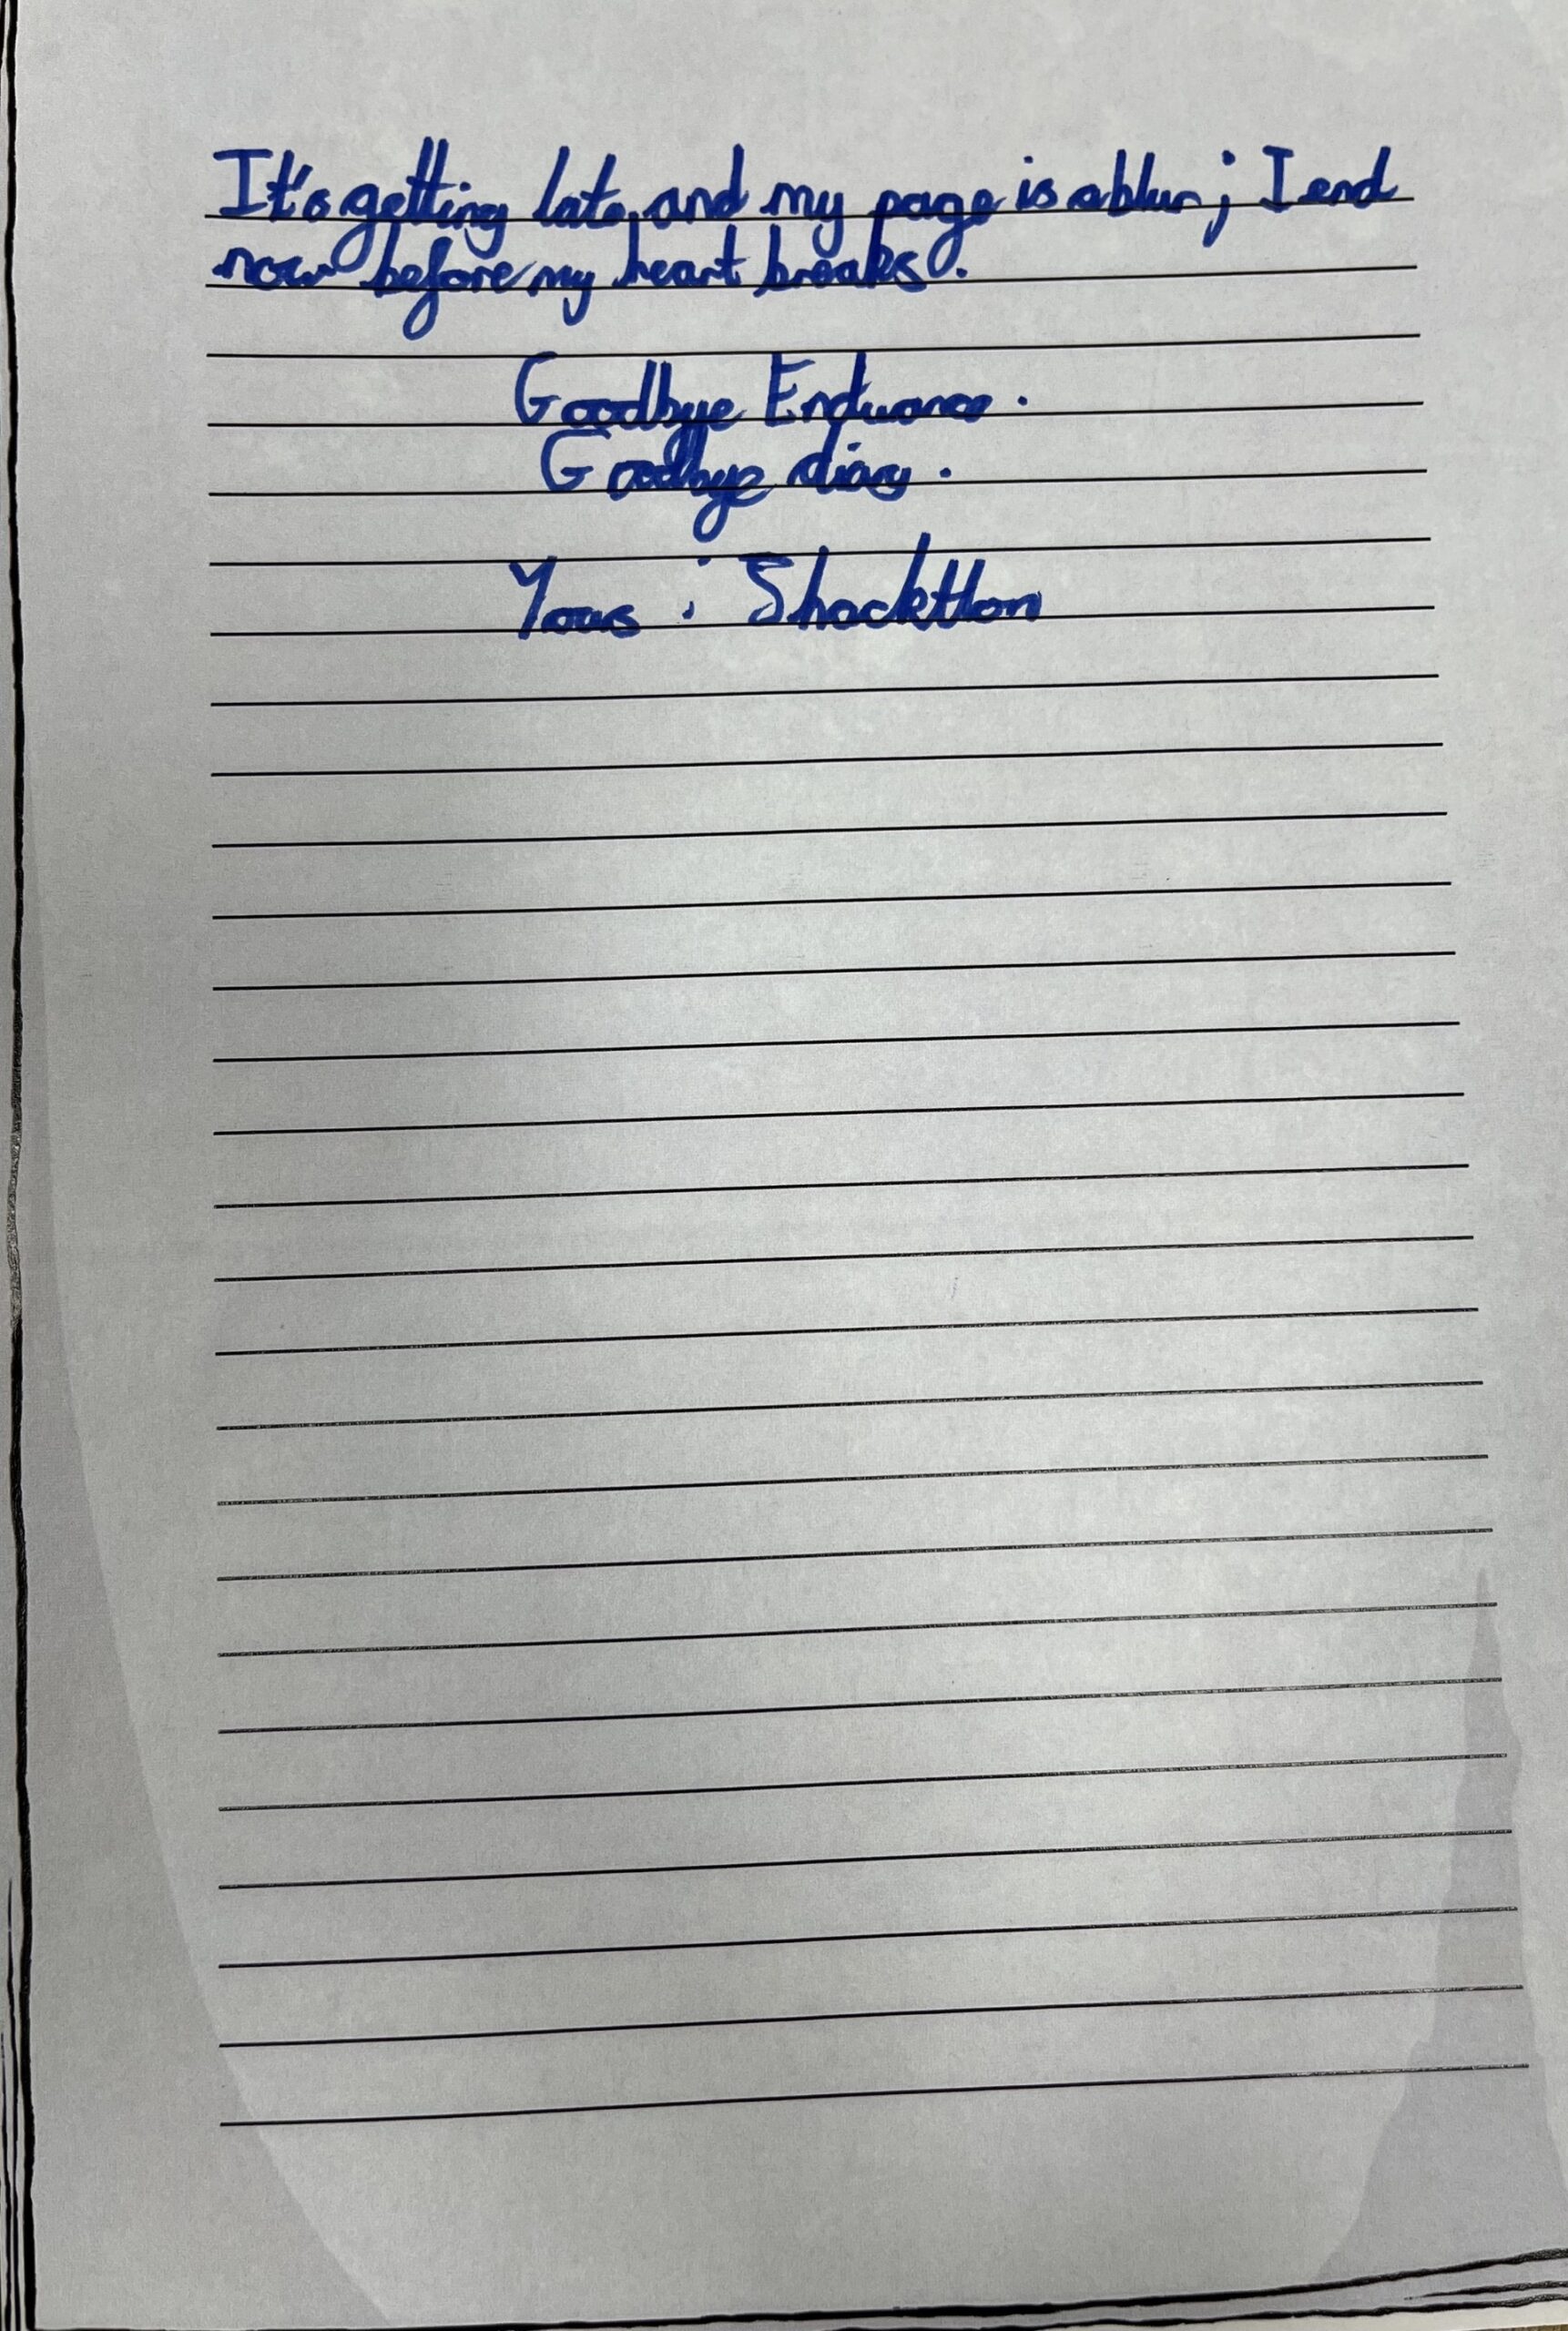 It's getting late and my page is a blur; I end
now before my heart breaks.
Goodbye Endurance.
Goodbye diary.
Yours : Shocktton